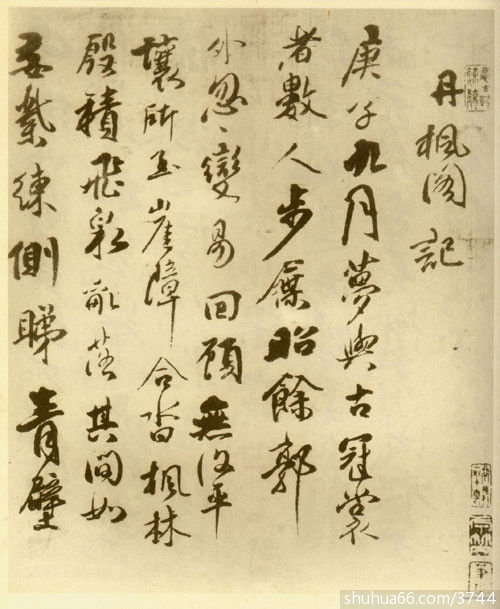 丹楓阁記
庚子九月夢與古冠裳
者數人步屧昭餘郭
外忽〻變易回顧無復平
壤所至崖障合沓楓林
殷積飛彩亂落其間如
紫練側睇青壁
shuhua66.com/3744